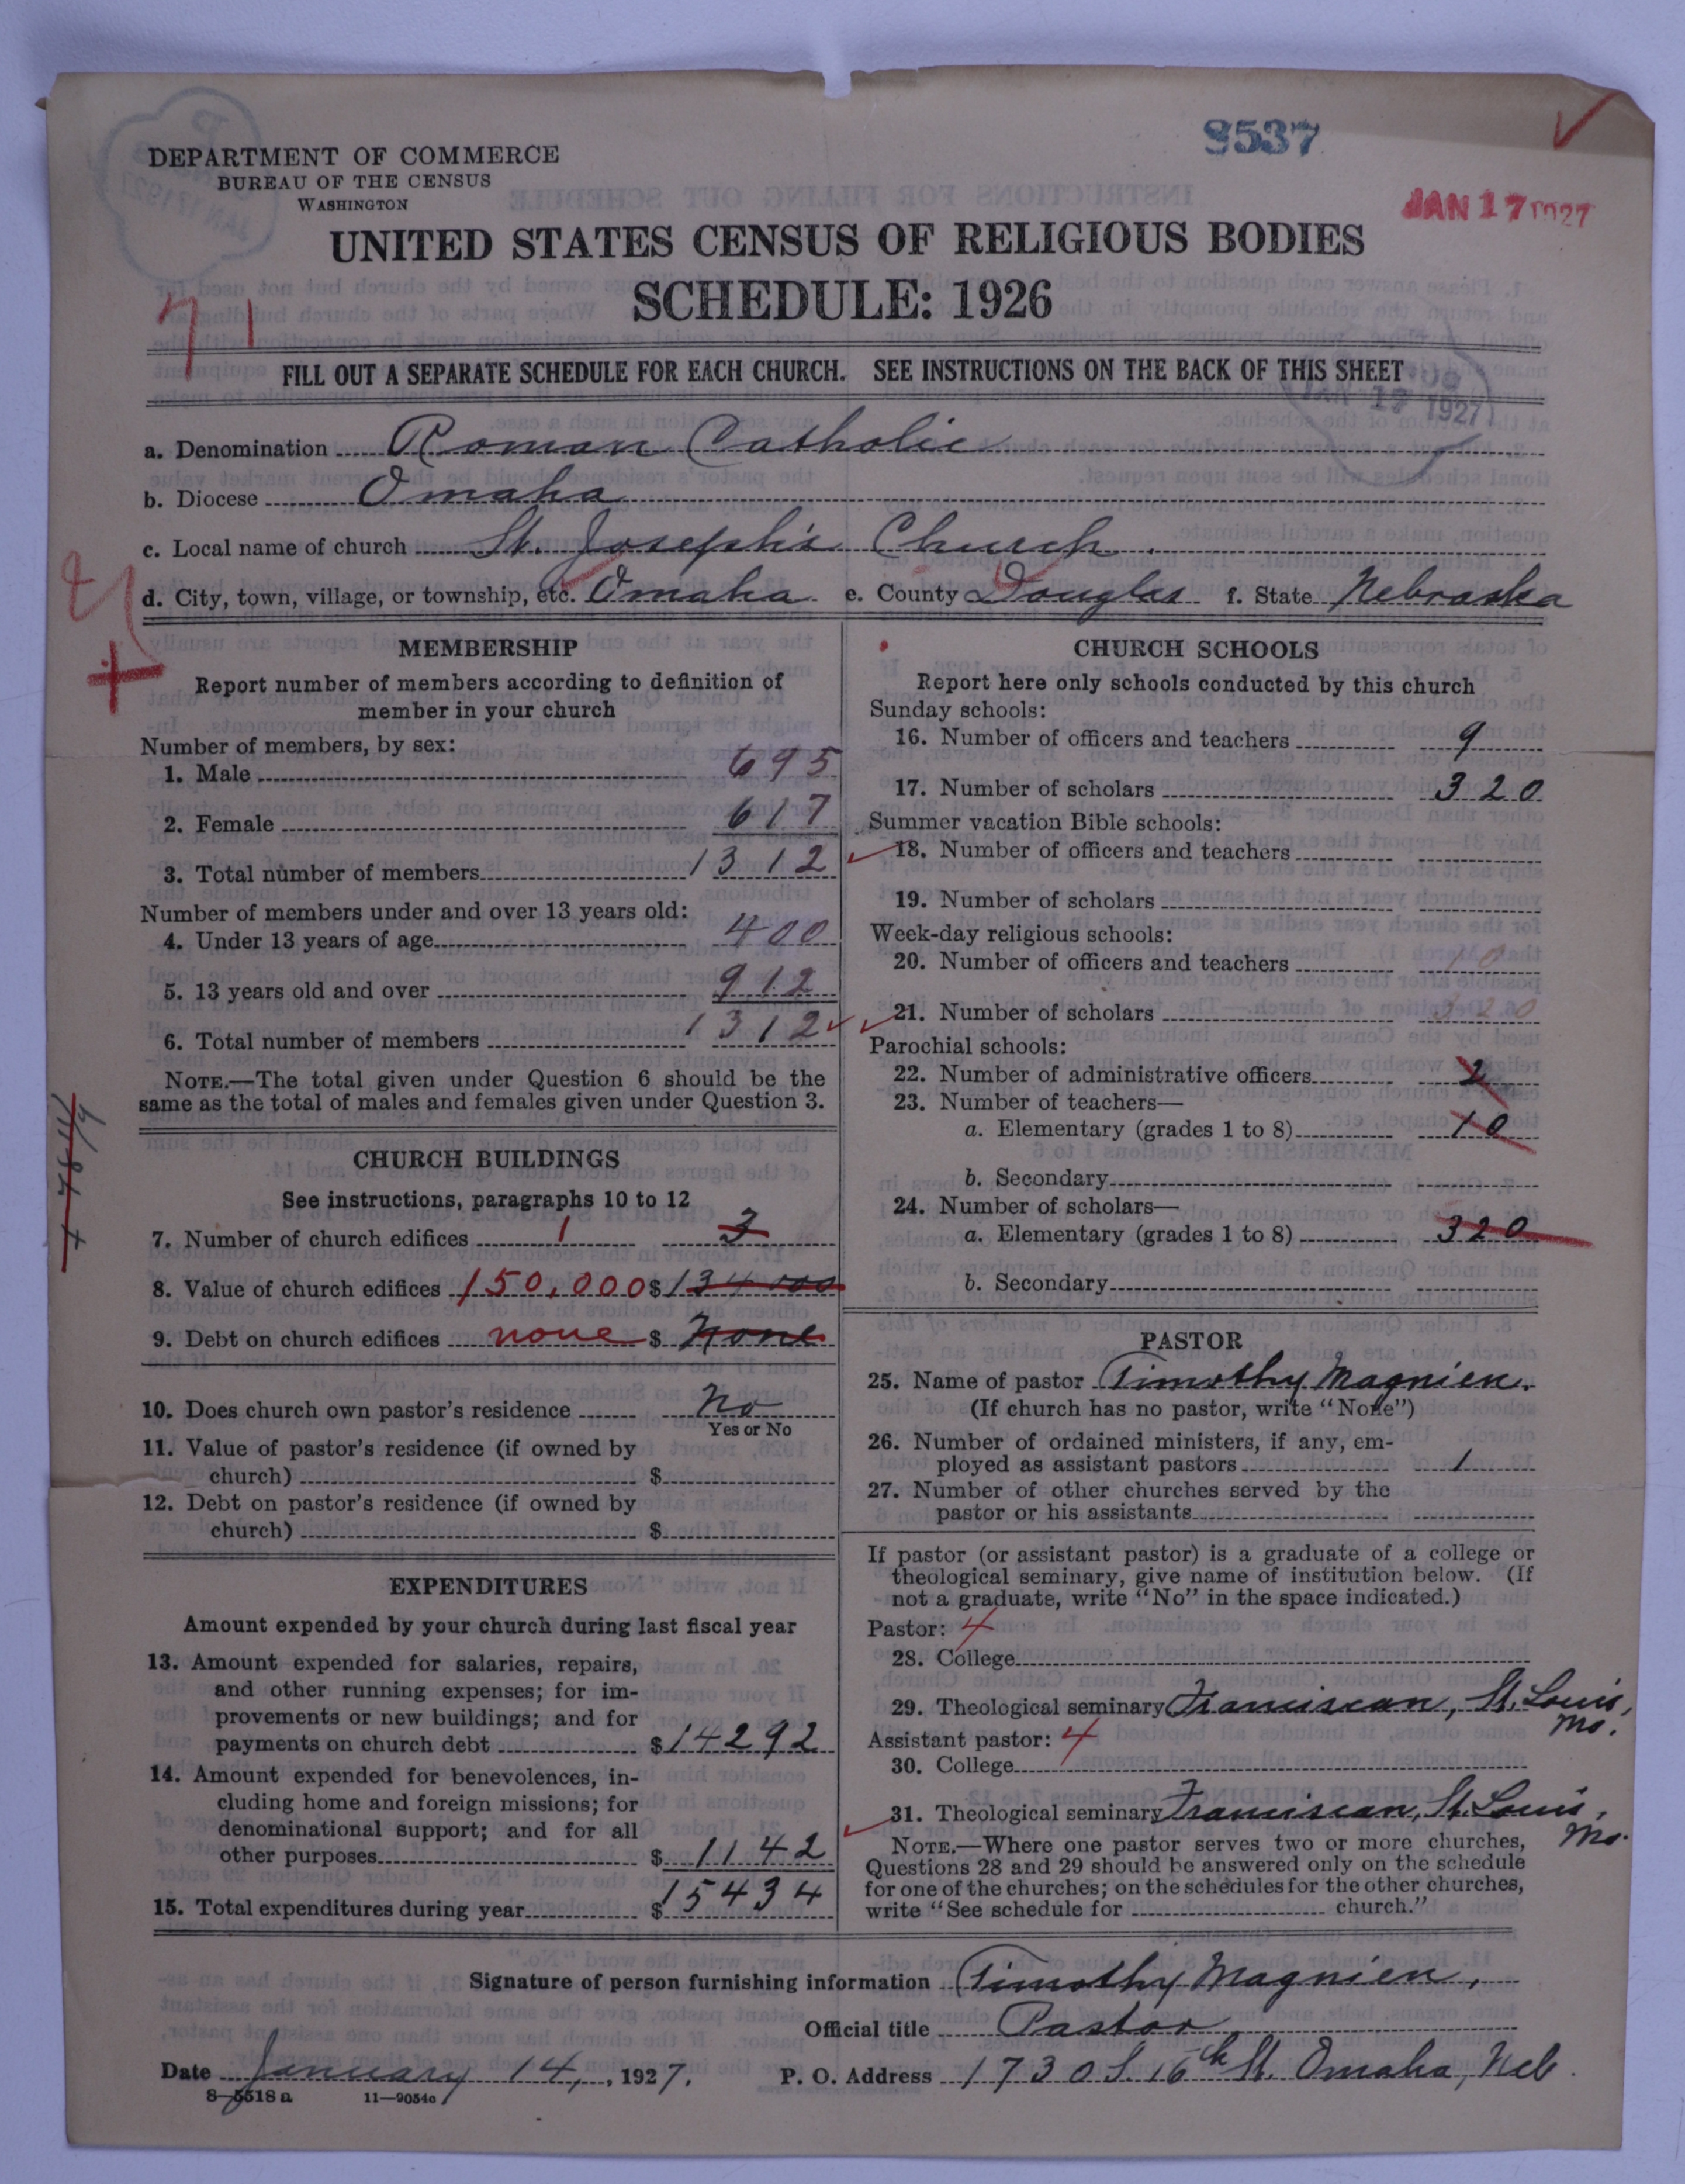 9537
JAN 17 1927
DEPARTMENT OF COMMERCE
BUREAU OF THE CENSUS
WASHINGTON
UNITED STATES CENSUS OF RELIGIOUS BODIES
SCHEDULE: 1926
71
FILL OUT A SEPARATE SCHEDULE FOR EACH CHURCH. SEE INSTRUCTIONS ON THE BACK OF THIS SHEET
JAN 17 1927
a. Denomination Roman Catholic
b. Diocese Omaha
c. Local name of church St. Joseph's Church.
d. City, town, village, or township, etc. Omaha e. County Douglas f. State Nebraska
MEMBERSHIP
Report number of members according to definition of
member in your church
Number of members, by sex:
1. Male 695
2. Female 617
3. Total number of members 1312
Number of members under and over 13 years old:
4. Under 13 years of age 400
5. 13 years old and over 912
6. Total number of members 1312
NOTE.—The total given under Question 6 should be the
same as the total of males and females given under Question 3.
CHURCH BUILDINGS
See instructions, paragraphs 10 to 12
7. Number of church edifices 1 3
8. Value of church edifices 150,000 $134000
9. Debt on church edifices none $ None
10. Does church own pastor's residence No
Yes or No
11. Value of pastor's residence (if owned by
church) $
12. Debt on pastor's residence (if owned by
church) $
EXPENDITURES
Amount expended by your church during last fiscal year
13. Amount expended for salaries, repairs,
and other running expenses; for im-
provements or new buildings; and for
payments on church debt $14292
14. Amount expended for benevolences, in-
cluding home and foreign missions; for
denominational support; and for all
other purposes $ 1142
15. Total expenditures during year $15434
CHURCH SCHOOLS
Report here only schools conducted by this church
Sunday schools:
16. Number of officers and teachers 9
17. Number of scholars 320
Summer vacation Bible schools:
18. Number of officers and teachers
19. Number of scholars
Week-day religious schools:
20. Number of officers and teachers 10
21. Number of scholars 320
Parochial schools:
22. Number of administrative officers 2
23. Number of teachers—
a. Elementary (grades 1 to 8) 10
b. Secondary
24. Number of scholars—
a. Elementary (grades 1 to 8) 320
b. Secondary
PASTOR
25. Name of pastor Timothy Magnien.
(If church has no pastor, write "None")
26. Number of ordained ministers, if any, em-
ployed as assistant pastors 1
27. Number of other churches served by the
pastor or his assistants
If pastor (or assistant pastor) is a graduate of a college or
theological seminary, give name of institution below. (If
not a graduate, write "No" in the space indicated.)
Pastor: 4
28. College
29. Theological seminary Franciscan, St. Louis,
Mo.
Assistant pastor: 4
30. College
31. Theological seminary Franciscan, St. Louis,
Mo.
NOTE.—Where one pastor serves two or more churches,
Questions 28 and 29 should be answered only on the schedule
for one of the churches; on the schedules for the other churches,
write "See schedule for church."
Signature of person furnishing information Timothy Magnien.
Official title Pastor
Date January 14, 1927. P. O. Address 1730 S. 16th St. Omaha, Neb.
8—5518 a 11—9054c